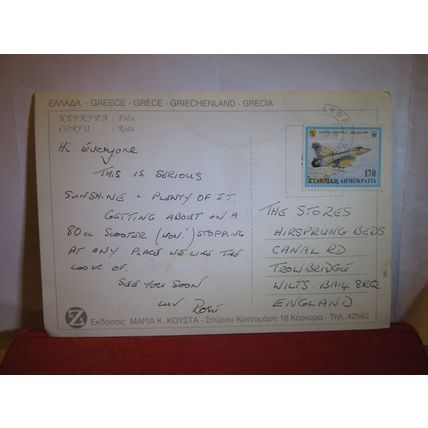 ΕΛΛΑΔΑ - GREECE - GRÈCE - GRIECHENLAND - GRECIA
ΚΕΡΚΥΡΑ : Ρόδα
CORFU : Roda
Hi Everyone
THIS IS SERIOUS
SUNSHINE - PLENTY OF IT.
GETTING ABOUT ON A
80cc SCOOTER STOPPING
AT ANY PLACE WE LIKE THE
LOOK OF.
SEE YOU SOON
luv Rose
170
ΕΛΛΗΝΙΚΗ ΔΗΜΟΚΡΑΤΙΑ
THE STORES
AIRSPRUNG BEDS
CANAL RD
TROWBRIDGE
WILTS. BA14 8RQ
ENGLAND
Εκδόσεις ΜΑΡΙΑ Κ. ΚΟΥΣΤΑ - Σπύρου Κοντομάρη 18 Κέρκυρα - Τηλ. 42562